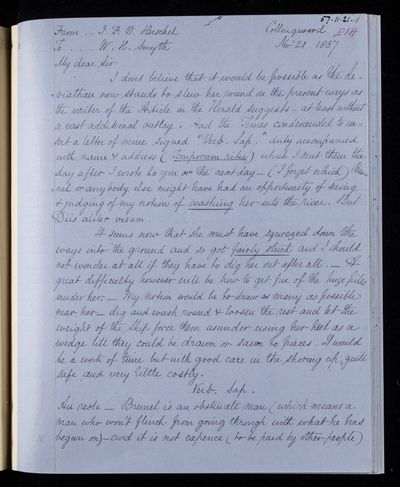 57-11-21-1
From .. J. F. W. Herschel Collingwood
£14
To .. .. W. H. Smyth Nov. 21. 1857
My dear Sir
I dont believe that it would be possible as the Le-
viathan now stands to slew her round on the present ways as
the writer of the Article in the Herald suggests - at least without
a vast additional outlay. Had the Times condescended to in-
sert a letter of mine signed "Verb. Sap." duly accompanied
with name & address ( ) which I sent them the
day after I wrote to you or the next day - (I forget which) Bru-
nel or anybody else might have had an opportunity of seeing
& judging of my notion of washing her into the river. But
Diis aliter visum.
It seems now that she must have squeezed down the
ways into the ground and so got fairly stuck and I should
not wonder at all if they have to dig her out after all. - A
great difficulty however will be how to get free of the huge piles
under her. - My notion would be to draw as many as possible
near her - dig and wash round & loosen the rest and let the
weight of the Ship force them asunder using her keel as a
wedge till they could be drawn or sawn to pieces. It would
be a work of time but with good care in the shoring up, quite
safe and very little costly.
Verb. Sap.
Au reste - Brunel is an obstinate man (which means a
man who won't flinch from going through with what he has
begun on) - and it is not expence (to be paid by other people)